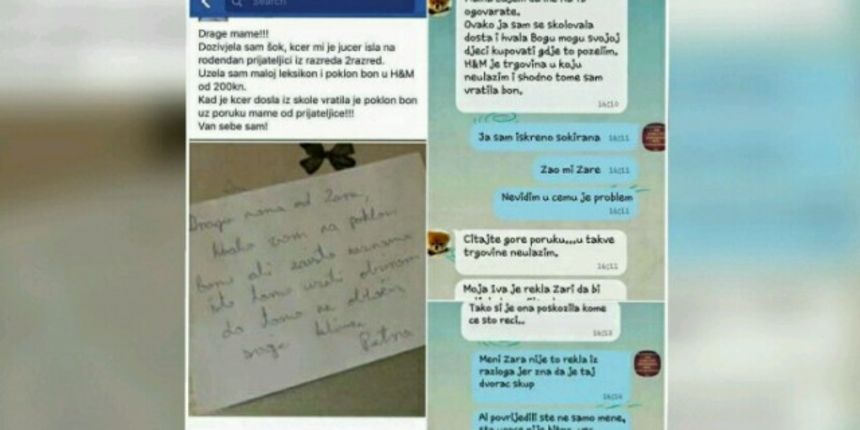 Search
Drage mame!!!
Dozivjela sam šok, kcer mi je jucer isla na
rođendan prijateljici iz razreda 2razred.
Uzela sam maloj leksikon i poklon bon u H&M
od 200kn.
Kad je kcer dosla iz skole vratila je poklon bon
uz poruku mame od prijateljice!!!
Van sebe sam!
Draga mama od Zare,
Hvala vam na poklon
bonu ali
isto
da
Petra
ogovarate.
Ovako ja sam se skolovala
dosta i hvala Bogu mogu svojoj
djeci kupovati gdje to pozelim.
H&M je trgovina u koju
neulazim i shodno tome sam
vratila bon.
16:10
Ja sam iskreno sokirana 16:11
Zao mi Zare 16:11
Nevidim u cemu je problem
16:11
Citajte gore poruku,,,u takve
trgovine neulazim.
16:11
Moja Iva je rekla Zari da bi
Tako si je ona poskozila kome
ce sto reci..
16:13
Meni Zara nije to rekla iz
razloga jer zna da je taj
dvorac skup
16:14
Al povrijedili ste ne samo mene,